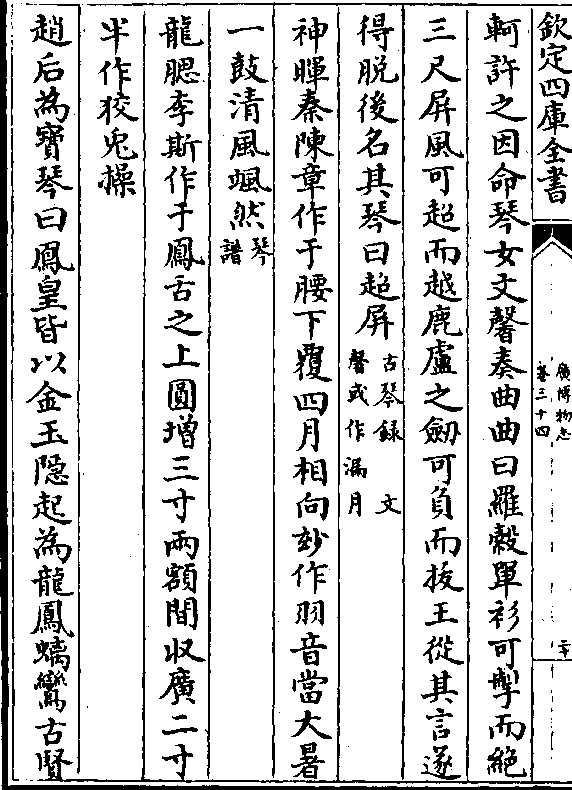 欽定四庫全書
廣博物志
卷三十四
二十
軻許之因命琴女文馨奏曲曲曰羅縠單衫可掣而絕
三尺屏風可超而越鹿盧之劒可負而拔王從其言遂
得脱後名其琴曰超屏古琴錄 文馨或作漏月
神暉秦陳章作于腰下覆四月相向玅作羽音當大暑
一鼓清風颯然琴譜
龍腮李斯作于鳳舌之上圓增三寸兩額間収廣二寸
半作狡兎操
趙后為寶琴曰鳳皇皆以金玉隠起為龍鳳螭鸞古賢